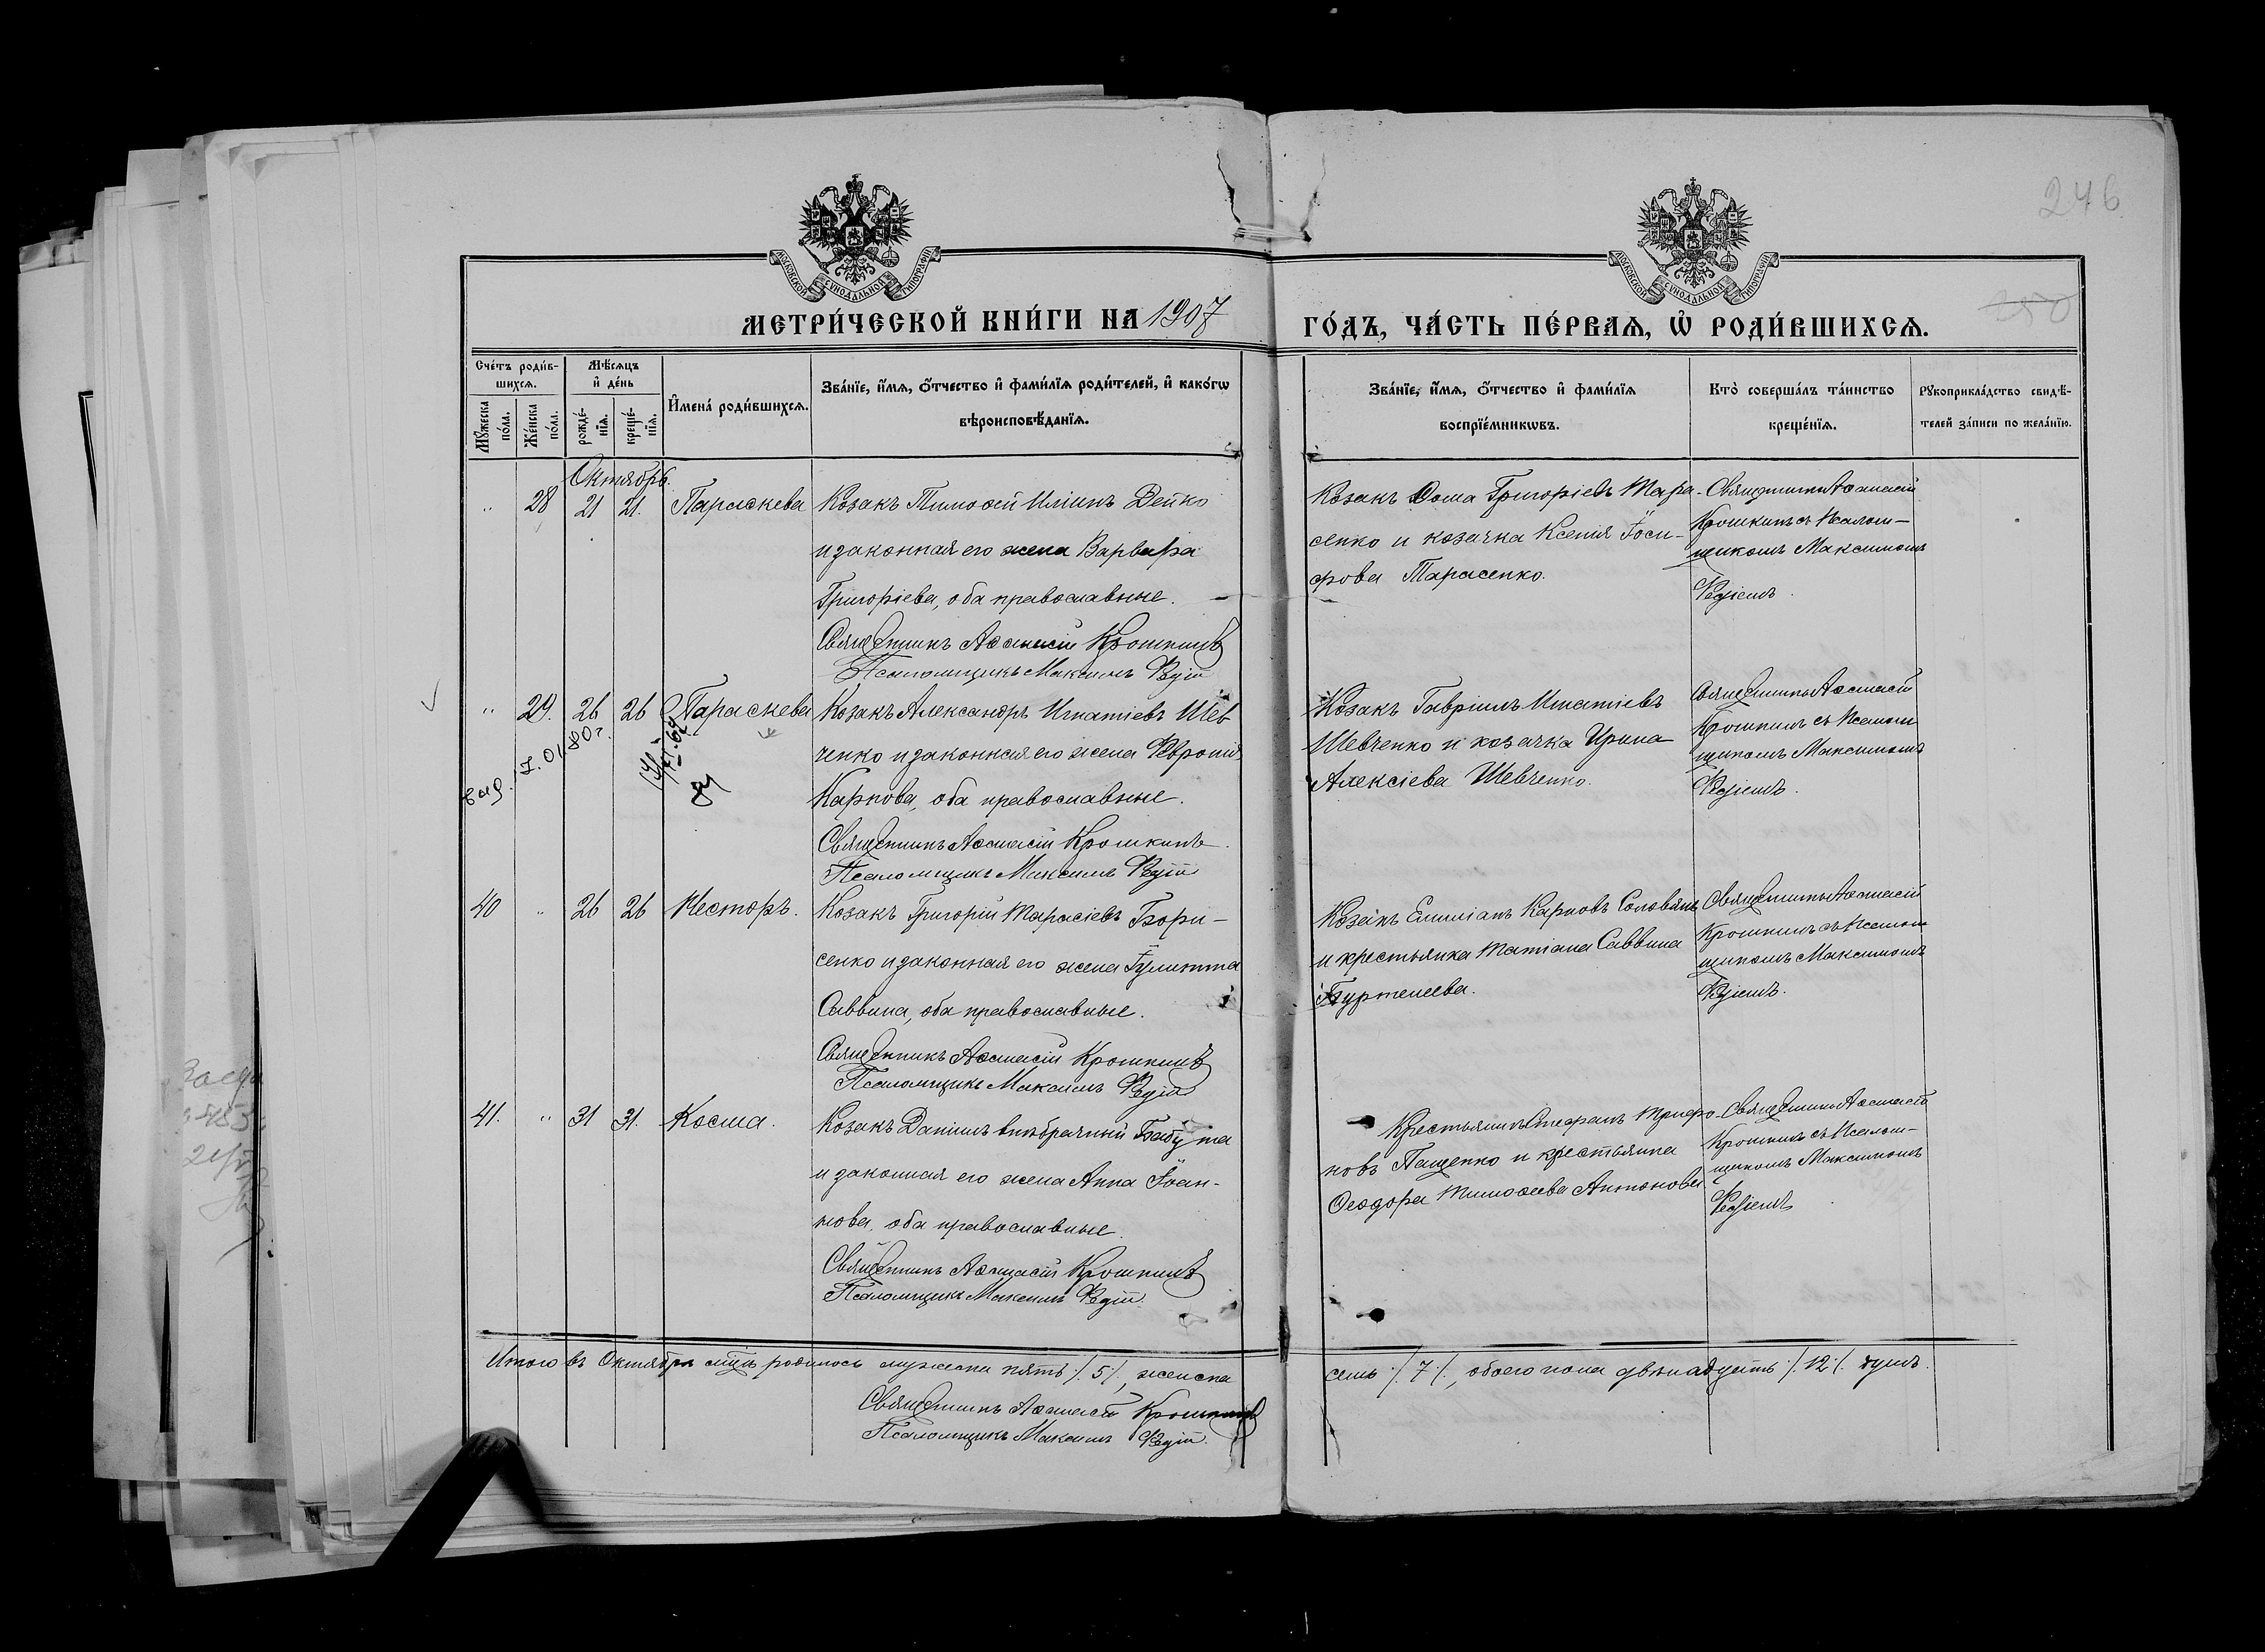 246
МОСКОВСКОЙ СУНОДАЛЬНОЙ ТИПОГРАФІИ
МОСКОВСКОЙ СУНОДАЛЬНОЙ ТИПОГРАФІИ
МЕТРИ́ЧЕСКОЙ КНИ́ГИ НА 1907 ГО́ДЪ, ЧА́СТЬ ПЕ́РВАѦ, Ѡ҆ РОДИ́ВШИХСѦ.
250
Сче́тъ роди́в-
шихсѧ.
Мꙋ́жеска по́ла.
Же́нска по́ла.
Мѣ́сѧцъ
и҆ де́нь
рожде́-
нїѧ.
креще́-
нїѧ.
И҆мена̀ роди́вшихсѧ.
Зва́нїе, и҆́мѧ, ѻ҆́тчество и҆ фами́лїѧ роди́телей, и҆ како́гѡ
вѣроисповѣ́данїѧ.
Зва́нїе, и҆́мѧ, ѻ҆́тчество и҆ фами́лїѧ
воспрїе́мникѡвъ.
Кто̀ соверша́лъ та́инство
креще́нїѧ.
Рꙋкоприкла́дство свидѣ́-
телей за́писи по жела́нїю.
Октябрь.
" 28 21 21. Параскева
Козакъ Тимоѳей Иліинъ Дейко
и законная его жена Варвара
Григоріева, оба православные.
Священникъ Аѳанасій Крошкинъ
Псаломщикъ Максимъ Редій
Козакъ Ѳома Григоріевъ Тара-
сенко и козачка Ксенія Іоси-
фова Тарасенко.
Священникъ Аѳанасій
Крошкинъ съ Псалом-
щикомъ Максимомъ
Редіемъ.
" 29. 26 26 Параскева
Козакъ Александръ Игнатіевъ Шев
ченко и законная его жена Февронія
Карпова, оба православные.
Священникъ Аѳанасій Крошкинъ.
Псаломщикъ Максимъ Редій
Козакъ Гавріилъ Игнатіевъ
Шевченко и козачка Ирина
Алексіева Шевченко.
Священникъ Аѳанасій
Крошкинъ съ Псалом
щикомъ Максимомъ
Редіемъ.
40 " 26 26 Несторъ.
Козакъ Григорій Тарасіевъ Бори-
сенко и законная его жена Іулитта
Саввина, оба православные.
Священникъ Аѳанасій Крошкинъ
Псаломщикъ Максимъ Редій
Козакъ Емиліанъ Карповъ
и крестьянка Татіана Саввина
Священникъ Аѳанасій
Крошкинъ съ Псалом
щикомъ Максимомъ
Редіемъ.
41. " 31 31. Косма.
Козакъ Даніилъ внѣбрачный
и законная его жена Анна Іоан-
нова, оба православные.
Священникъ Аѳанасій Крошкинъ
Псаломщикъ Максимъ Редій.
Крестьянинъ Стефанъ Трифо-
новъ Пащенко и крестьянка
Ѳеодора Тимоѳеева Антонова
Священникъ Аѳанасій
Крошкинъ съ Псалом-
щикомъ Максимомъ
Редіемъ
Итого въ Октябрѣ мцѣ родилось мужеска пять ·/. 5 ·/., женска семь ·/. 7 ·/., обоего пола двѣнадцать ·/. 12 ·/. душъ.
Священникъ Аѳанасій Крошкинъ
Псаломщикъ Максимъ Редій.